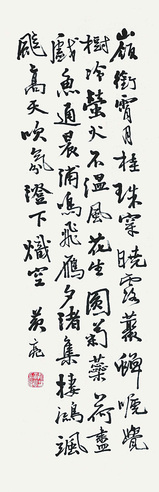 嶺銜霄月桂珠穿曉露叢蟬嘒覺
樹冷螢火不溫風花生圓菊蘂荷盡
戲魚通晨浦鳴飛雁夕渚集棲鴻颯
颯高天吹氛澄下熾空 黃